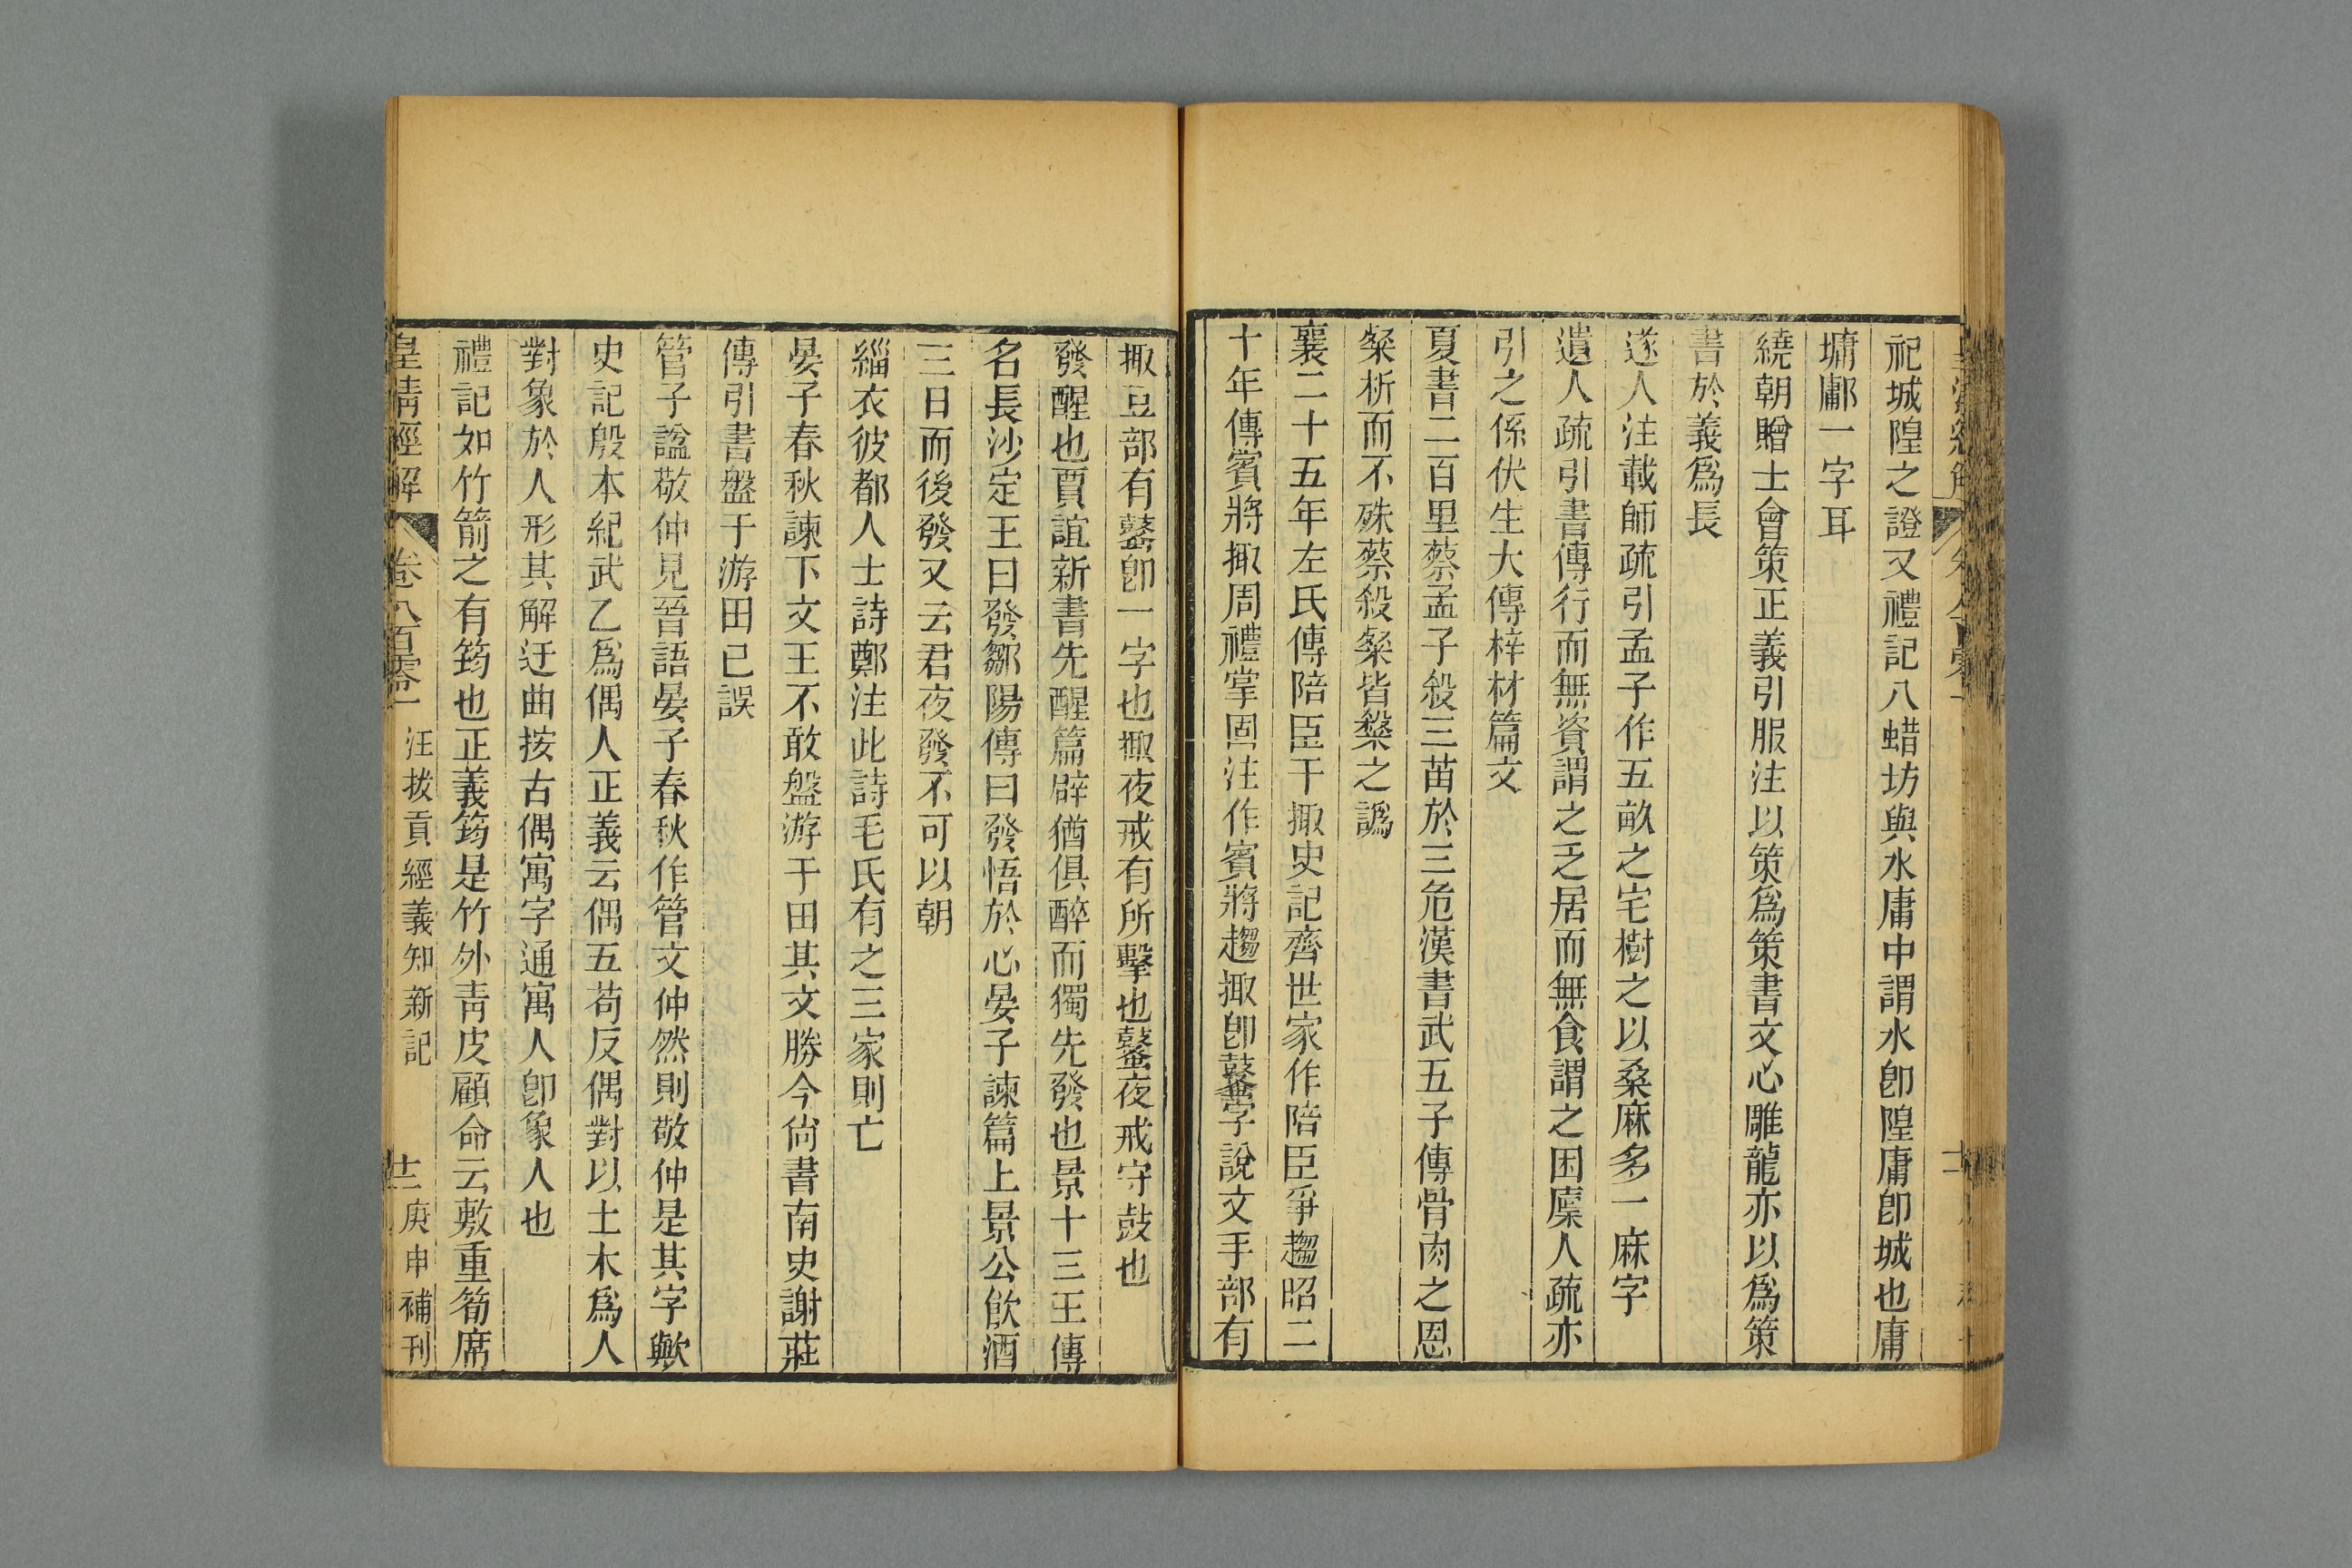 祀城隍之證又禮記八蜡坊與水庸中謂水卽隍庸卽城也庸
墉鄘一字耳
繞朝贈士會策正義引服注以策爲策書文心雕龍亦以爲策
書於義爲長
遂人注載師疏引孟子作五畝之宅樹之以桑麻多一麻字
遺人疏引書傳行而無資謂之乏居而無食謂之困廩人疏亦
引之係伏生大傳梓材篇文
夏書二百里蔡孟子殺三苗於三危漢書武五子傳骨肉之恩
粲析而不殊蔡殺粲皆㯟之譌
襄二十五年左氏傳陪臣干掫史記齊世家作陪臣爭趨昭二
十年傳賓將掫周禮掌固注作賓將趨掫卽鼜字說文手部有
掫豆部有鼜卽一字也掫夜戒有所擊也鼜夜戒守鼓也
發醒也賈誼新書先醒篇辟猶俱醉而獨先發也景十三王傳
名長沙定王曰發鄒陽傳曰發悟於心晏子諫篇上景公飮酒
三日而後發又云君夜發不可以朝
緇衣彼都人士詩鄭注此詩毛氏有之三家則亡
晏子春秋諫下文王不敢盤游于田其文勝今尙書南史謝莊
傳引書盤于游田已誤
管子諡敬仲見晉語晏子春秋作管文仲然則敬仲是其字歟
史記殷本紀武乙爲偶人正義云偶五苟反偶對以土木爲人
對象於人形其解迂曲按古偶寓字通寓人卽象人也
禮記如竹箭之有筠也正義筠是竹外靑皮顧命云敷重筍席
皇淸經解 卷八百零一 汪拔貢經義知新記 十二 庚申補刊